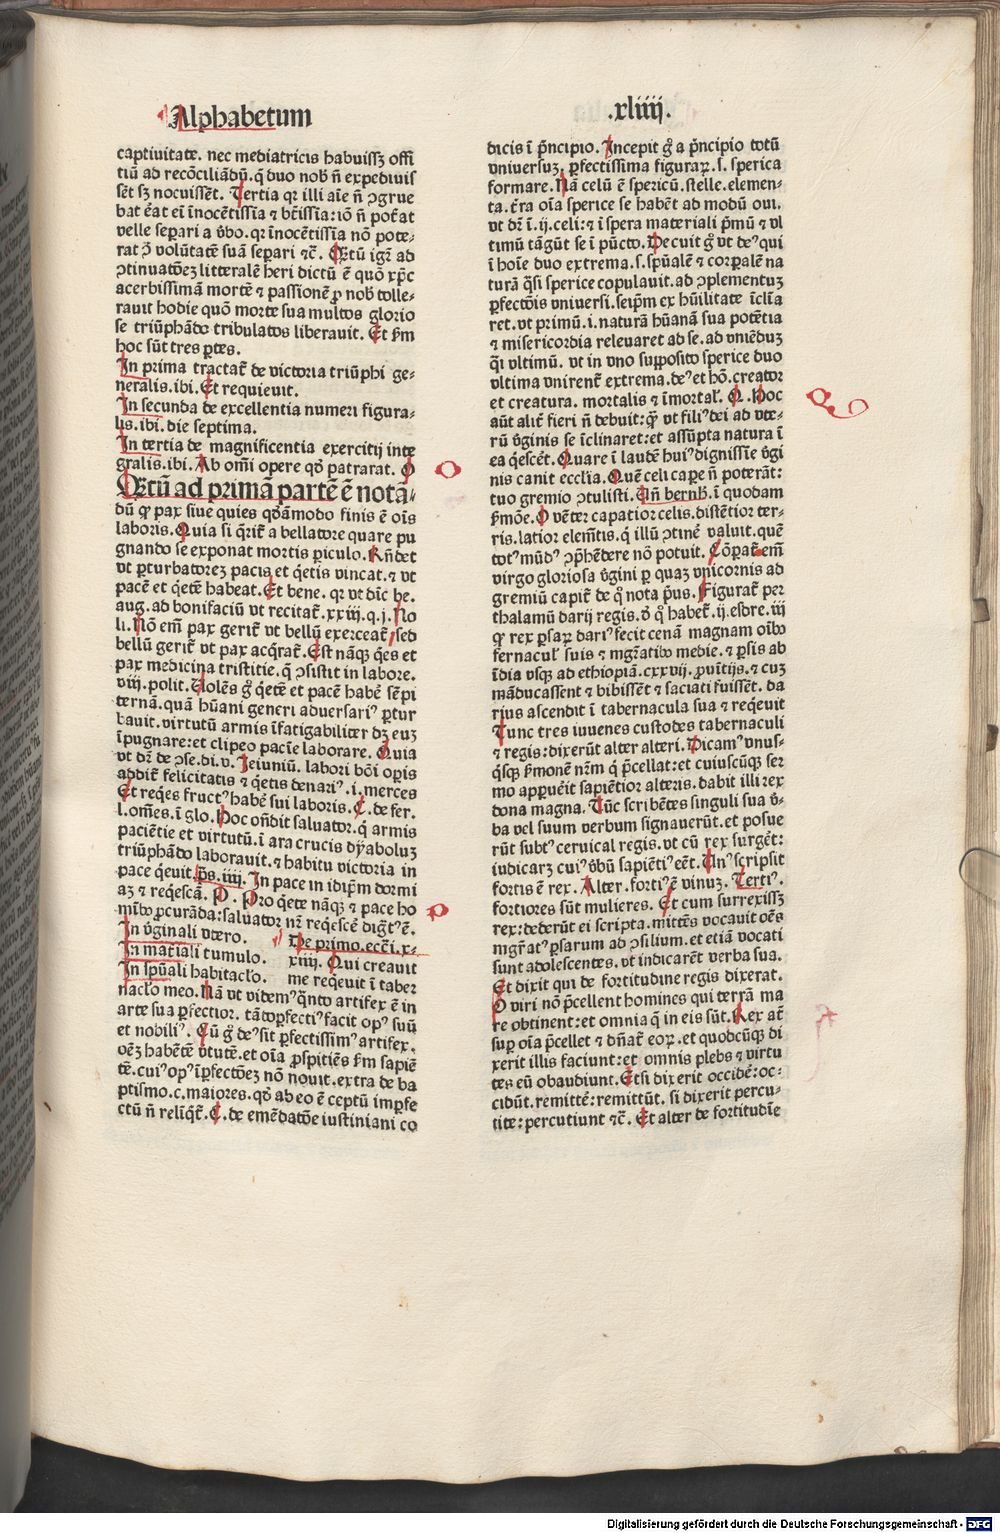 Alphabetum
captiuitate. nec mediatricis habuissꝫ offi
tiũ ad recõciliãdũ. q̃ duo nob̃ ñ expediuis
sẽt sꝫ nocuissẽt. Tertia qꝛ illi aĩe ñ ꝯgrue
bat ẽat eĩ ĩnocẽtissĩa ⁊ bt̃issĩa: iõ ñ pot̃at
velle separi a v̓bo. qꝛ innocẽtissĩa nõ pote⸗
rat ꝯ̃ volũtatẽ suã separi ⁊c̃. Q̃tũ igr̃ ad
ꝯtinuatõeꝫ litteralẽ heri dictũ ẽ quõ xp̃c
acerbissimã mortẽ ⁊ passionẽ ꝓ nob̃ tolle⸗
rauit hodie quõ morte sua multos glorio
se triũphãdo tribulatos liberauit. Et ẜm
hoc sũt tres ꝑtes.
In prima tractat̃ de victoria triũphi ge⸗
neralis. ibi. Et requieuit.
In secunda de excellentia numeri figura⸗
lis. ibi. die septima.
In tertia de magnificentia exercitij inte
gralis. ibi. Ab omĩ opere qd̓ patrarat. O
O
Q̃tũ ad primã partẽ ẽ notã⸗
dũ ꝙ pax siue quies qd̓ãmodo finis ẽ oĩs
laboris. Quia si q̃rit̃ a bellatore quare pu
gnando se exponat mortis ꝑiculo. Rñdet
vt ꝑturbatoreꝫ pacis et q̃etis vincat. ⁊ vt
pacẽ et q̃etẽ habeat. Et bene. qꝛ vt dic̃ be.
aug. ad bonifaciũ vt recitat̃. xxiij. q. j. No
li. Nõ em̃ pax gerit̃ vt bellũ exerceat̃/ sed
bellũ gerit̃ vt pax acq̃rat̃. Est nãqꝫ q̃es et
pax medicina tristitie. q̃ ꝯsistit in labore.
viij. polit. Uolẽs g̊ q̃etẽ et pacẽ habẽ sẽpi
ternã. quã hũani generi aduersariꝰ ꝑtur
bauit. virtutũ armis ĩfatigabiliter dꝫ euꝫ
ĩpugnare: et clipeo paciẽ laborare. Quia
vt dr̃ de ꝯse. di. v. Jeiuniũ. labori bõi oꝑis
addit̃ felicitatis ⁊ q̃etis denariꝰ. i. merces
Et req̃es fructꝰ habẽ sui laboris. C. de fer.
l. om̃es. ĩ glo. Hoc oñdit saluator. q̃ armis
paciẽtie et virtutũ. ĩ ara crucis dyaboluꝫ
triũphãdo laborauit. ⁊ habitu victoria in
pace q̃euit. p̃s. iiij. In pace in idip̃m dormi
aꝫ ⁊ req̃escã. P. Pro q̃ete nãqꝫ ⁊ pace ho
P
mĩbꝰ ꝓcurãda: saluator nr̃ req̃escẽ dig̃tꝰ ẽ.
In v̓ginali vtero.
In mat̃iali tumulo.
In sp̃uali habitacl̓o.
De primo. ecc̃i. x⸗
xiiij. Qui creauit
me req̃euit ĩ taber
nacl̓o meo. Nã vt videmꝰ q̃nto artifex ẽ in
arte sua ꝑfectior. tãto ꝑfectiꝰ facit opꝰ suũ
et nobiliꝰ. Cũ g̊ deꝰ sit ꝑfectissimꝰ artifex.
oẽꝫ habẽtẽ v̓tutẽ. et oĩa ꝓspitiẽs ẜm sapiẽ
tẽ. cuiꝰ opꝰ ĩꝑfectõeꝫ nõ nouit. extra de ba
ptismo. c. maiores. qd̓ ab eo ẽ ceptũ imꝑfe
ctũ ñ reliq̃t. C. de emẽdatõe iustiniani co
.xliiij.
dicis ĩ p̃ncipio. Incepit g̊ a p̃ncipio totũ
vniuersuꝫ, ꝑfectissima figuraꝝ. s. sperica
formare. Nã celũ ẽ spericũ. stelle. elemen⸗
ta. t̓ra oĩa sperice se habẽt ad modũ oui.
vt dr̃ ĩ. ij. celi: ⁊ ĩ spera materiali p̃mũ ⁊ vl
timũ tãgũt se ĩ pũcto. Decuit g̊ vt deꝰ qui
ĩ hoĩe duo extrema. s. sp̃ualẽ ⁊ corꝑalẽ na
turã q̃si sperice copulauit. ad ꝯplementuꝫ
ꝑfectõis vniuersi. seip̃m ex hũilitate ĩclĩa
ret. vt primũ. i. naturã hũanã sua potẽtia
⁊ misericordia releuaret ad se. ad vniẽduꝫ
q̃i vltimũ. vt in vno supposito sperice duo
vltima vnirent̃ extrema. deꝰ et hõ. creator
et creatura. mortalis ⁊ ĩmortal̓. Q. Hoc
Q
aũt alit̃ fieri ñ debuit: q̃ vt filiꝰ dei ad vte⸗
rũ v̓ginis se ĩclinaret: et assũpta natura ĩ
ea q̃escẽt. Quare ĩ laudẽ huiꝰ dignissĩe v̓gi
nis canit eccl̃ia. Quẽ celi caꝑe ñ poterãt:
tuo gremio ꝯtulisti. Uñ bernh̃. ĩ quodam
ẜmõe. O vẽter capatior celis. distẽtior ter⸗
ris. latior elemt̃is. q̃ illũ ꝯtinẽ valuit. quẽ
totꝰ mũdꝰ ꝯp̃hẽdere nõ potuit. Cõꝑat̃ em̃
virgo gloriosa v̓gini ꝑ quaꝫ vnicornis ad
gremiũ capit̃ de q̃ nota p̃us. Figurat̃ per
thalamũ darij regis. d̓ q̊ habet̃. ij. esdre. iij
ꝙ rex ꝑsaꝝ dariꝰ fecit cenã magnam oĩbꝰ
fernacul̓ suis ⁊ mgr̃atibꝰ medie. ⁊ ꝑsis ab
ĩdia vsqꝫ ad ethiopiã. cxxvij. ꝓuĩtijs. ⁊ cuꝫ
mãducassent ⁊ bibissẽt ⁊ saciati fuissẽt. da
rius ascendit ĩ tabernacula sua ⁊ req̃euit
Tunc tres iuuenes custodes tabernaculi
⁊ regis: dixerũt alter alteri. Dicamꝰ vnus⸗
q̃sqꝫ ẜmonẽ nr̃m q̃ p̃cellat: et cuiuscũqꝫ ser
mo apꝑuẽit sapiẽtior alteris. dabit illi rex
dona magna. Tũc scribẽtes singuli sua v̓⸗
ba vel suum verbum signauerũt. et posue
rũt subtꝰ ceruical regis. vt cũ rex surgẽt:
iudicarꝫ cuiꝰ v̓bũ sapiẽtiꝰ eẽt. Unꝰ scripsit
fortis ẽ rex. Alter. fortiꝰ ẽ vinuꝫ. Tertiꝰ.
fortiores sũt mulieres. Et cum surrexissꝫ
rex: dederũt ei scripta. mittẽs vocauit oẽs
mgr̃atꝰ ꝑsarum ad ꝯsilium. et etiã vocati
sunt adolescentes. vt indicarẽt verba sua.
Et dixit qui de fortitudine regis dixerat.
O viri nõ p̃cellent homines qui terrã ma
re obtinent: et omnia q̃ in eis sũt. Rex at̃
suꝑ oĩa p̃cellet ⁊ dñat̃ eoꝝ. et quodcũqꝫ di
xerit illis faciunt: et omnis plebs ⁊ virtu
tes eũ obaudiunt. Etsi dixerit occidẽ: oc⸗
cidũt. remittẽ: remittũt. si dixerit percu⸗
tite: percutiunt ⁊c̃. Et alter de fortitudĩe
Digitalisierung gefördert durch die Deutsche Forschungsgemeinschaft - DFG